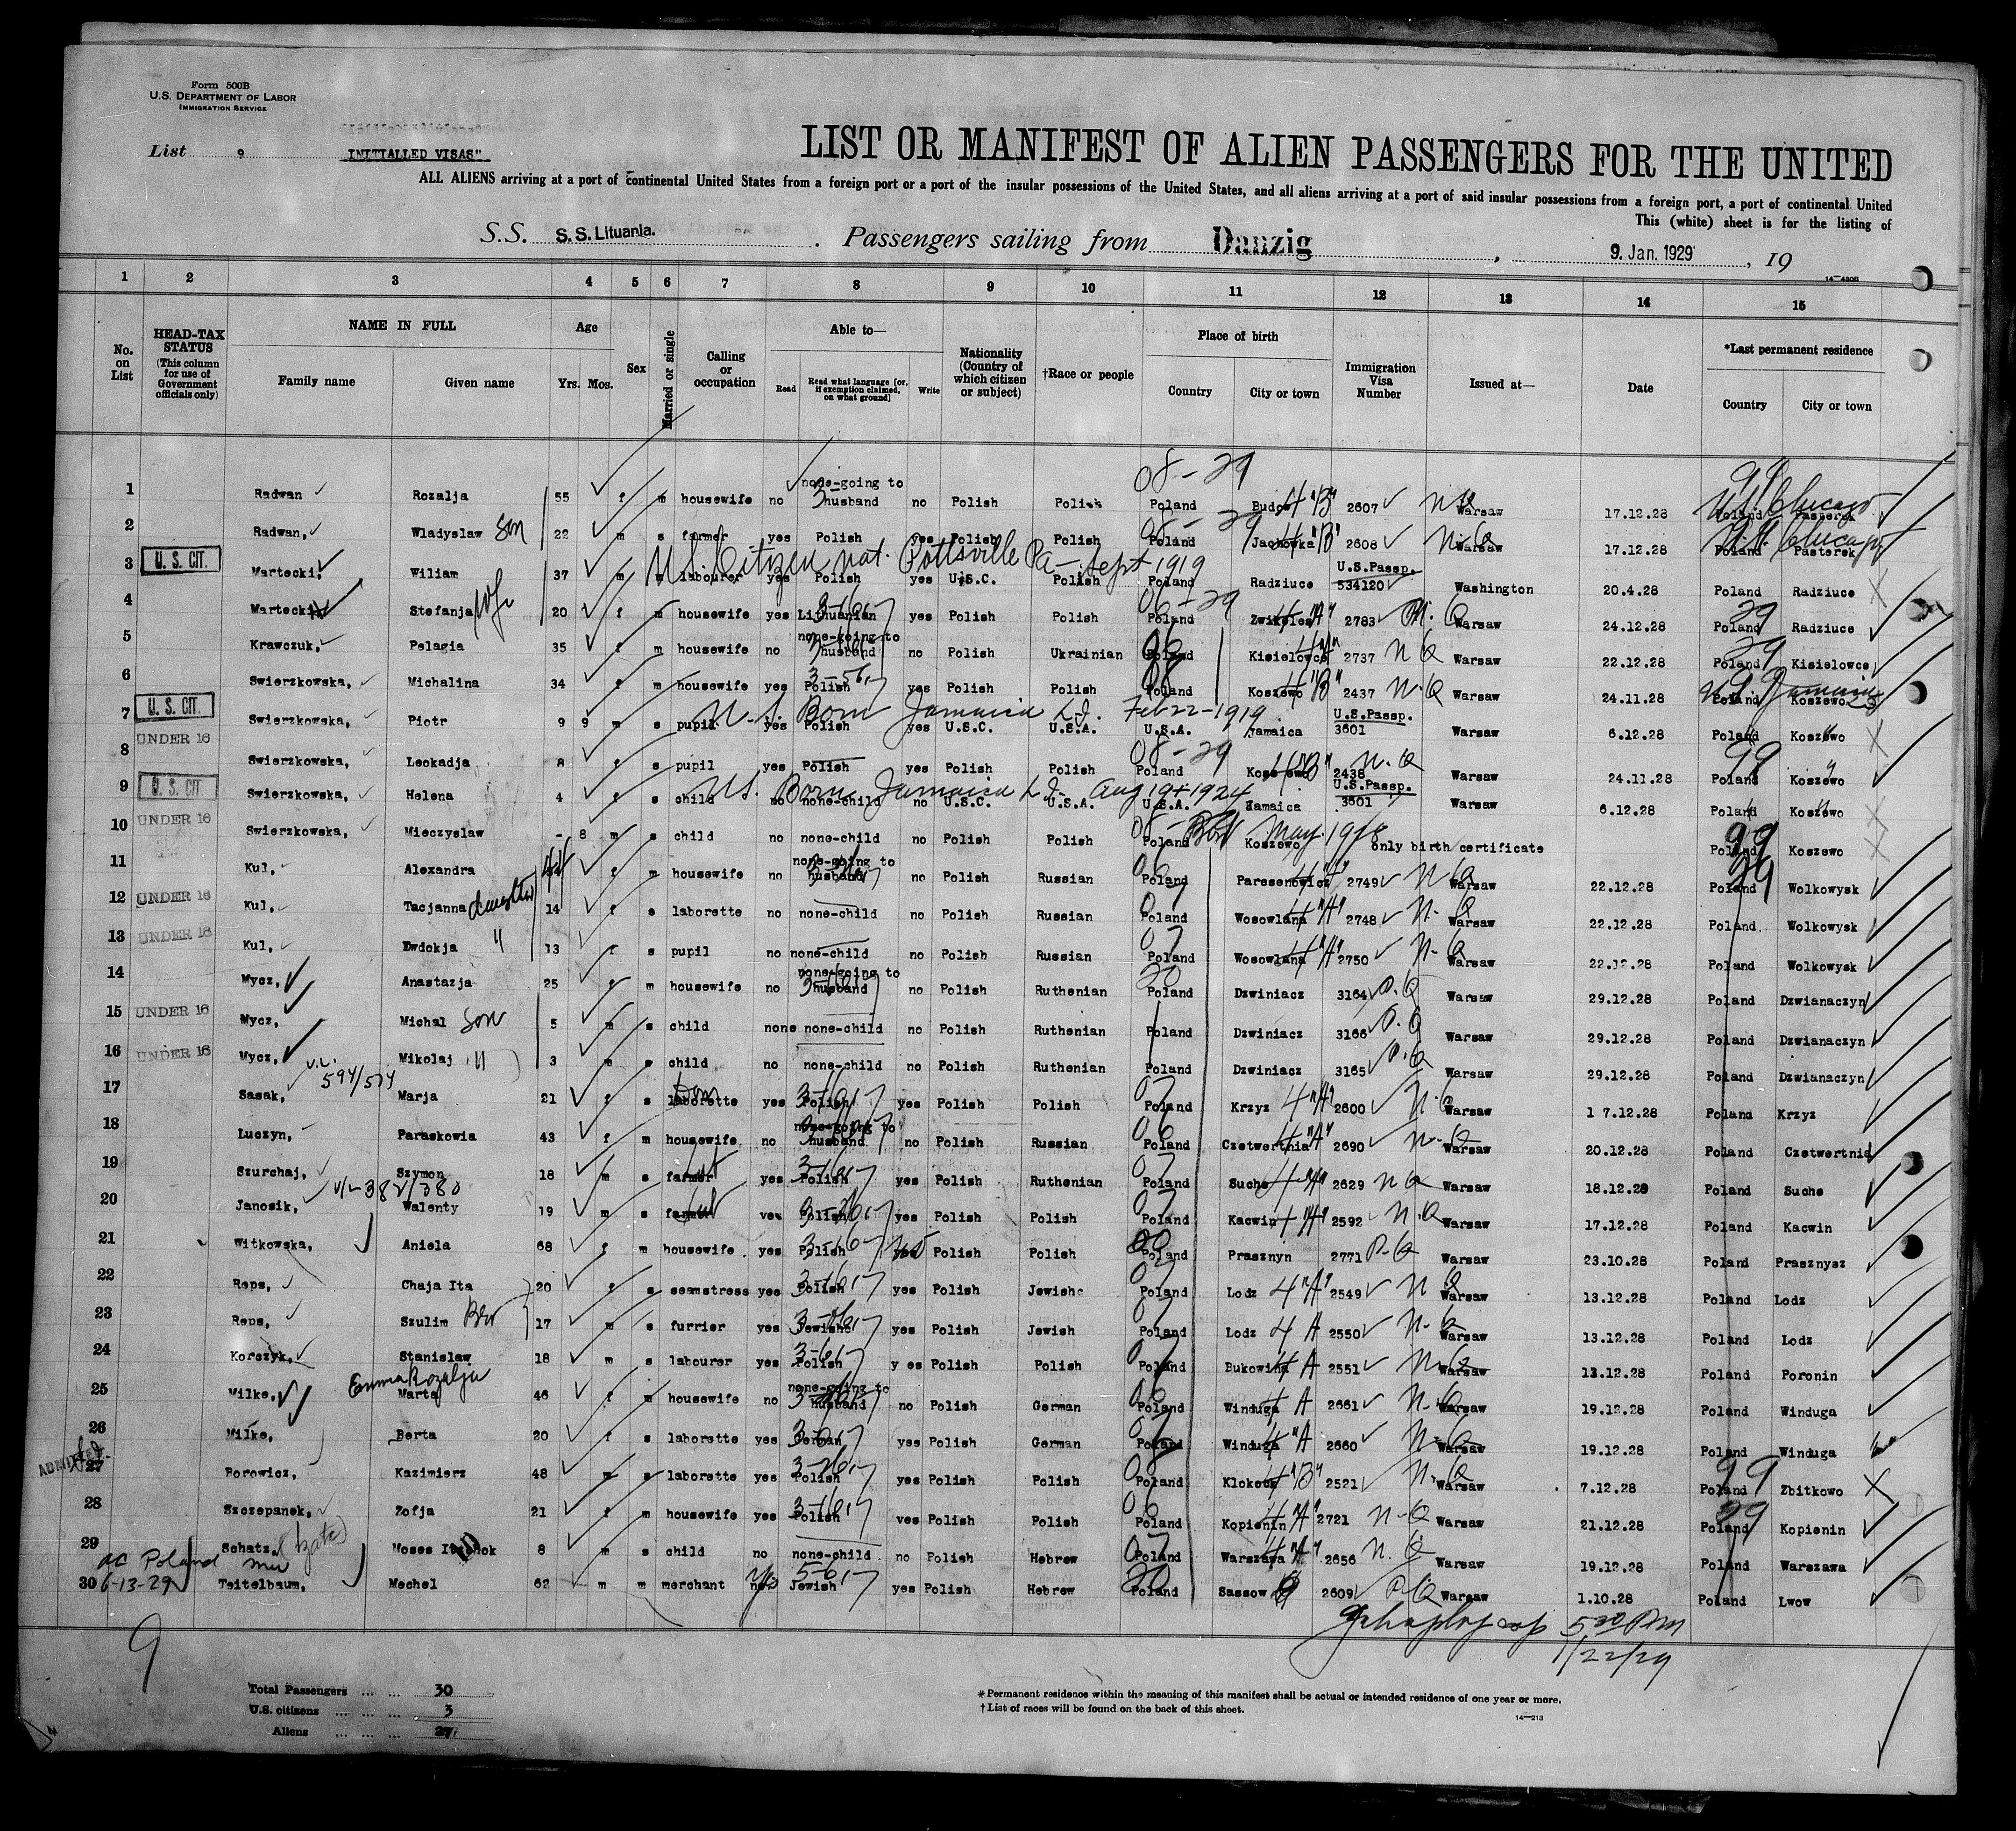 Form 500B
U.S. DEPARTMENT OF LABOR
IMMIGRATION SERVICE
List 9 INITIALLED VISAS"
LIST OR MANIFEST OF ALIEN PASSENGERS FOR THE UNITED
ALL ALIENS arriving at a port of continental United States from a foreign port or a port of the insular possessions of the United States, and all aliens arriving at a port of said insular possessions from a foreign port, a port of continental United
This (white) sheet is for the listing of
S.S. S.S. Lituania. Passengers sailing from Danzig, 9. Jan. 1929, 19
1 2 3 4 5 6 7 8 9 10 11 12 13 14 15
No. on List
HEAD-TAX STATUS (This column for use of Government officials only)
NAME IN FULL
Family name Given name
Age Yrs. Mos.
Sex
Married or single
Calling or occupation
Able to— Read Read what language [or, if exemption claimed, on what ground] Write
Nationality (Country of which citizen or subject)
†Race or people
Place of birth Country City or town
Immigration Visa Number
Issued at—
Date
*Last permanent residence Country City or town
08-29 29
1 Radwan Rozalja 55 f m housewife no none-going to husband no Polish Polish Poland "B" 2607 NQ Warsaw 17.12.28 Poland Chicago
2 Radwan, Wladyslaw son 22 m s farmer yes Polish yes Polish Polish Poland Jachowka "B" 2608 NQ Warsaw 17.12.28 Poland Pasterek Chicago
U.S. Citizen nat. Pottsville Pa - Sept 1919
3 U. S. CIT. Martecki, Wiliam 37 m m labourer yes Polish yes U.S.C. Polish Poland Radziuce U.S.Passp. 534120 Washington 20.4.28 Poland Radziuce
4 Martecki Stefanja wife 20 f m housewife yes Lithuanian yes Polish Polish Poland "A" 2783 N.Q Warsaw 24.12.28 Poland Radziuce
5 Krawczuk, Pelagia 35 f m housewife no none-going to husband no Polish Ukrainian Poland Kisielowce 2737 NQ Warsaw 22.12.28 Poland Kisielowce
6 Swierzkowska, Michalina 34 f m housewife yes Polish yes Polish Polish Poland Koszewo "B" 2437 N.Q Warsaw 24.11.28 Poland Koszewo
U.S. Born Jamaica L.I. Feb 22-1919
7 U. S. CIT. Swierzkowska, Piotr 9 9 m s pupil yes Polish yes U.S.C. U.S.A. U.S.A. Jamaica U.S.Passp. 3601 Warsaw 6.12.28 Poland Koszewo
UNDER 16
8 Swierzkowska, Leokadja 8 f s pupil yes Polish yes Polish Polish Poland Koszewo "B" 2438 N.Q Warsaw 24.11.28 Poland Koszewo
U.S. Born Jamaica L.I. Aug 19-1924
9 U. S. CIT Swierzkowska, Helena 4 f s child no none-child no U.S.C. U.S.A. U.S.A. Jamaica U.S.Passp. 3601 Warsaw 6.12.28 Poland Koszewo
UNDER 16
10 Swierzkowska, Mieczyslaw - 8 m s child no none-child no Polish Polish Poland Koszewo May. 1928 only birth certificate Poland Koszewo
11 Kul, Alexandra f m housewife no none-going to husband no Polish Russian Poland 2749 NQ Warsaw 22.12.28 Poland Wolkowysk
12 UNDER 16 Kul, Tacjanna daughter 14 f s laborette no none-child no Polish Russian Poland Wosowlana "A" 2748 N.Q Warsaw 22.12.28 Poland Wolkowysk
13 UNDER 16 Kul, Ewdokja " 13 f s pupil no none-child no Polish Russian Poland Wosowlana "A" 2750 N.Q Warsaw 22.12.28 Poland Wolkowysk
14 Mycz, Anastazja 25 f m housewife no none-going to husband no Polish Ruthenian Poland Dzwiniacz 3164 P.Q Warsaw 29.12.28 Poland Dzwianaczyn
15 UNDER 16 Mycz, Michal son 5 m s child none none-child no Polish Ruthenian Poland Dzwiniacz 3166 P.Q Warsaw 29.12.28 Poland Dzwianaczyn
16 UNDER 16 Mycz, Mikolaj " 3 m s child no none-child no Polish Ruthenian Poland Dzwiniacz 3165 P.Q Warsaw 29.12.28 Poland Dzwianaczyn
V.L. 594/574
17 Sasak, Marja 21 f s laborette Dom yes Polish yes Polish Polish Poland Krzyz 4"A" 2600 N.Q Warsaw 1 7.12.28 Poland Krzyz
18 Luczyn, Paraskowia 43 f m housewife no none-going to husband no Polish Russian Poland Czetwertnia "A" 2690 N.Q Warsaw 20.12.28 Poland Czetwertnia
19 Szurchaj, Szymon 18 m s farmer yes Polish yes Polish Ruthenian Poland Suche 4"A" 2629 NQ Warsaw 18.12.28 Poland Suche
20 Janosik, Walenty 19 m s farmer yes Polish yes Polish Polish Poland Kacwin 4"A" 2592 N.Q Warsaw 17.12.28 Poland Kacwin
21 Witkowska, Aniela 68 f m housewife yes Polish yes Polish Polish Poland Prasznyn 2771 P.Q Warsaw 23.10.28 Poland Prasznysz
22 Reps, Chaja Ita 20 f s seamstress yes Polish yes Polish Jewishc Poland Lodz 4"A" 2549 N Q Warsaw 13.12.28 Poland Lodz
23 Reps, Szulim Bro 17 m s furrier yes Jewishc yes Polish Jewish Poland Lodz 4 A 2550 N.Q Warsaw 13.12.28 Poland Lodz
24 Korczyk, Stanislaw 18 m s labourer yes Polish y es Polish Polish Poland Bukowina 4 A 2551 N.Q Warsaw 13.12.28 Poland Poronin
Emma Rozalja
25 Milke, Marta 46 f m housewife no none-going to husband no Polish German Poland Winduga 4 A 2661 N.Q Warsaw 19.12.28 Poland Winduga
26 Milke, Berta 20 f s laborette yes German yes Polish German Poland Winduga 4"A 2660 N.Q Warsaw 19.12.28 Poland Winduga
ADMITTED
27 Borowicz, Kazimierz 48 m s laborette yes Polish yes Polish Polish Poland Klokock 4"B" 2521 N.Q Warsaw 7.12.28 Poland Zbitkowo
28 Szczepanek, Zofja 21 f m housewife yes Polish yes Polish Polish Poland Kopienin "A" 2721 N.Q Warsaw 21.12.28 Poland Kopienin
29 Schatz, Moses 8 m s child no none-child no Polish Hebrew Poland Warszawa 4"A" 2656 N.Q Warsaw 19.12.28 Poland Warszawa
Poland 6-13-29
30 Teitelbaum, Mechel 62 m m merchant yes Jewish yes Polish Hebrew Poland Sassow 2609 P.Q Warsaw 1.10.28 Poland Lwow
5 30 P.M
1/22/29
9
Total Passengers ... ... 30
U.S. citizens ... ... ... 3
Aliens ... ... ... 27
*Permanent residence within the meaning of this manifest shall be actual or intended residence of one year or more.
†List of races will be found on the back of this sheet.
14—213